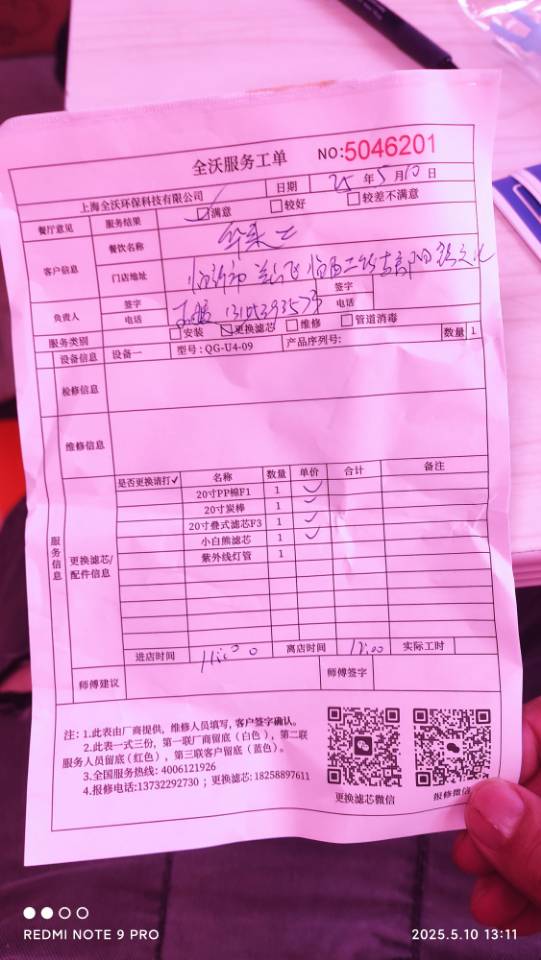 全沃服务工单 NO:5046201
上海全沃环保科技有限公司 日期 25 年 5 月 10 日
餐厅意见 服务结果 满意 较好 较差不满意
客户信息 餐饮名称 华莱士
门店地址
负责人 签字 签字
电话 电话
服务类别 安装 更换滤芯 维修 管道消毒
设备信息 设备一 型号：QG-U4-09 产品序列号： 数量 1
检修信息
维修信息
服务信息
更换滤芯/配件信息
是否更换请打✓ 名称 数量 单价 合计 备注
20寸PP棉F1 1 ✓
20寸炭棒 1 ✓
20寸叠式滤芯F3 1 ✓
小白熊滤芯 1 ✓
紫外线灯管 1
进店时间 离店时间 12:00 实际工时
师傅建议 师傅签字
注：1.此表由厂商提供，维修人员填写，客户签字确认。
2.此表一式三份，第一联厂商留底（白色），第二联
服务人员留底（红色），第三联客户留底（蓝色）。
3.全国服务热线：4006121926
4.报修电话:13732292730 ；更换滤芯: 18258897611
更换滤芯微信 报修微信
REDMI NOTE 9 PRO 2025.5.10 13:11